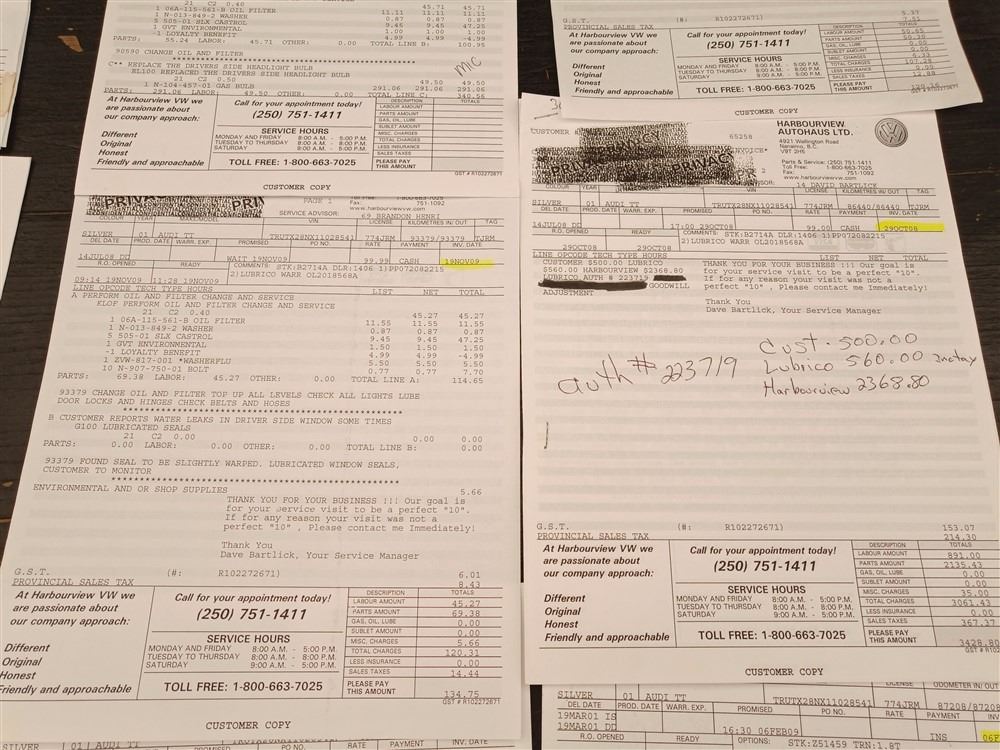 45.71 45.71
21 C2 0.40
1 06A-115-561-B OIL FILTER 11.11 11.11 11.11
1 N-013-849-2 WASHER 0.87 0.87 0.87
5 505-01 SLX CASTROL 9.45 9.45 47.25
1 GVT ENVIRONMENTAL 1.00 1.00 1.00
-1 LOYALTY BENEFIT 4.99 4.99 -4.99
PARTS: 55.24 LABOR: 45.71 OTHER: 0.00 TOTAL LINE B: 100.95
90590 CHANGE OIL AND FILTER
C** REPLACE THE DRIVERS SIDE HEADLIGHT BULB
EL100 REPLACED THE DRIVERS SIDE HEADLIGHT BULB
21 C2 0.50 49.50 49.50
1 N-104-457-01 GAS BULB 291.06 291.06 291.06
PARTS: 291.06 LABOR: 49.50 OTHER: 0.00 TOTAL LINE C: 340.56
M/C
At Harbourview VW we
are passionate about
our company approach:
Different
Original
Honest
Friendly and approachable
Call for your appointment today!
(250) 751-1411
SERVICE HOURS
MONDAY AND FRIDAY 8:00 A.M. - 5:00 P.M.
TUESDAY TO THURSDAY 8:00 A.M. - 5:00 P.M.
SATURDAY 9:00 A.M. - 5:00 P.M.
TOLL FREE: 1-800-663-7025
DESCRIPTION TOTALS
LABOUR AMOUNT
PARTS AMOUNT
GAS, OIL, LUBE
SUBLET AMOUNT
MISC. CHARGES
TOTAL CHARGES
LESS INSURANCE
SALES TAXES
PLEASE PAY
THIS AMOUNT
GST # R102272671
CUSTOMER COPY
PAGE 1
www.harbourviewvw.com
SERVICE ADVISOR: 69 BRANDON HENRI
COLOUR YEAR MAKE/MODEL VIN LICENSE KILOMETRES IN/OUT TAG
SILVER 01 AUDI TT TRUTX28NX11028541 774JRM 93379/93379 TJRM
DEL DATE PROD. DATE WARR. EXP. PROMISED PO NO. RATE PAYMENT INV. DATE
14JUL08 DD WAIT 19NOV09 99.99 CASH 19NOV09
R.O. OPENED READY COMMENTS STK:B2714A DLR:1406 1)PP072082215
2)LUBRICO WARR OL2018568A
09:14 19NOV09 11:28 19NOV09
LINE OPCODE TECH TYPE HOURS LIST NET TOTAL
A PERFORM OIL AND FILTER CHANGE AND SERVICE
KLOF PERFORM OIL AND FILTER CHANGE AND SERVICE
21 C2 0.40 45.27 45.27
1 06A-115-561-B OIL FILTER 11.55 11.55 11.55
1 N-013-849-2 WASHER 0.87 0.87 0.87
5 505-01 SLX CASTROL 9.45 9.45 47.25
1 GVT ENVIRONMENTAL 1.50 1.50 1.50
-1 LOYALTY BENEFIT 4.99 4.99 -4.99
1 ZVW-817-001 *WASHERFLU 5.50 5.50 5.50
10 N-907-750-01 BOLT 0.77 0.77 7.70
PARTS: 69.38 LABOR: 45.27 OTHER: 0.00 TOTAL LINE A: 114.65
93379 CHANGE OIL AND FILTER TOP UP ALL LEVELS CHECK ALL LIGHTS LUBE
DOOR LOCKS AND HINGES CHECK BELTS AND HOSES
B CUSTOMER REPORTS WATER LEAKS IN DRIVER SIDE WINDOW SOME TIMES
G100 LUBRICATED SEALS
21 C2 0.00 0.00 0.00
PARTS: 0.00 LABOR: 0.00 OTHER: 0.00 TOTAL LINE B: 0.00
93379 FOUND SEAL TO BE SLIGHTLY WARPED. LUBRICATED WINDOW SEALS,
CUSTOMER TO MONITOR
ENVIRONMENTAL AND OR SHOP SUPPLIES 5.66
THANK YOU FOR YOUR BUSINESS !!! Our goal is
for your service visit to be a perfect "10".
If for any reason your visit was not a
perfect "10" , Please contact me Immediately!
Thank You
Dave Bartlick, Your Service Manager
G.S.T. (#: R102272671) 6.01
PROVINCIAL SALES TAX 8.43
At Harbourview VW we
are passionate about
our company approach:
Different
Original
Honest
Friendly and approachable
Call for your appointment today!
(250) 751-1411
SERVICE HOURS
MONDAY AND FRIDAY 8:00 A.M. - 5:00 P.M.
TUESDAY TO THURSDAY 8:00 A.M. - 5:00 P.M.
SATURDAY 9:00 A.M. - 5:00 P.M.
TOLL FREE: 1-800-663-7025
DESCRIPTION TOTALS
LABOUR AMOUNT 45.27
PARTS AMOUNT 69.38
GAS, OIL, LUBE 0.00
SUBLET AMOUNT 0.00
MISC. CHARGES 5.66
TOTAL CHARGES 120.31
LESS INSURANCE 0.00
SALES TAXES 14.44
PLEASE PAY
THIS AMOUNT 134.75
GST # R102272671
CUSTOMER COPY
G.S.T. (#: R102272671) 5.37
PROVINCIAL SALES TAX 7.51
At Harbourview VW we
are passionate about
our company approach:
Different
Original
Honest
Friendly and approachable
Call for your appointment today!
(250) 751-1411
SERVICE HOURS
MONDAY AND FRIDAY 8:00 A.M. - 5:00 P.M.
TUESDAY TO THURSDAY 8:00 A.M. - 5:00 P.M.
SATURDAY 9:00 A.M. - 5:00 P.M.
TOLL FREE: 1-800-663-7025
DESCRIPTION TOTALS
LABOUR AMOUNT
PARTS AMOUNT
GAS, OIL, LUBE
SUBLET AMOUNT 0.00
MISC. CHARGES
TOTAL CHARGES 107.28
LESS INSURANCE 0.00
SALES TAXES 12.88
PLEASE PAY
THIS AMOUNT
CUSTOMER COPY
CUSTOMER 65258
HARBOURVIEW
AUTOHAUS LTD.
4921 Wellington Road
Nanaimo, B.C.
V9T 2H5
Parts & Service: (250) 751-1411
Toll Free: 1-800-663-7025
Fax: 751-1092
www.harbourviewvw.com
14 DAVID BARTLICK
COLOUR YEAR VIN LICENSE KILOMETRES IN/OUT TAG
SILVER 01 AUDI TT TRUTX28NX11028541 774JRM 86440/86440 TJRM
DEL DATE PROD. DATE WARR. EXP. PROMISED PO NO. RATE PAYMENT INV. DATE
14JUL08 DD 17:00 29OCT08 99.00 CASH 29OCT08
R.O. OPENED READY COMMENTS: STK:B2714A DLR:1406 1)PP072082215
2)LUBRICO WARR OL2018568A
29OCT08 29OCT08
LINE OPCODE TECH TYPE HOURS LIST NET TOTAL
CUSTOMER $500.00 LUBRICO
$560.00 HARBOURVIEW $2368.80
LUBRICO AUTH # 223719
GOODWILL
ADJUSTMENT
THANK YOU FOR YOUR BUSINESS !!! Our goal is
for your service visit to be a perfect "10".
If for any reason your visit was not a
perfect "10" , Please contact me Immediately!
Thank You
Dave Bartlick, Your Service Manager
auth # 223719
Cust. 500.00
Lubrico 560.00
Harbourview 2368.80
G.S.T. (#: R102272671) 153.07
PROVINCIAL SALES TAX 214.30
At Harbourview VW we
are passionate about
our company approach:
Different
Original
Honest
Friendly and approachable
Call for your appointment today!
(250) 751-1411
SERVICE HOURS
MONDAY AND FRIDAY 8:00 A.M. - 5:00 P.M.
TUESDAY TO THURSDAY 8:00 A.M. - 5:00 P.M.
SATURDAY 9:00 A.M. - 5:00 P.M.
TOLL FREE: 1-800-663-7025
DESCRIPTION TOTALS
LABOUR AMOUNT 891.00
PARTS AMOUNT 2135.43
GAS, OIL, LUBE 0.00
SUBLET AMOUNT 0.00
MISC. CHARGES 35.00
TOTAL CHARGES 3061.43
LESS INSURANCE 0.00
SALES TAXES 367.37
PLEASE PAY
THIS AMOUNT 3428.80
GST # R102
CUSTOMER COPY
LICENSE ODOMETER IN/OUT
SILVER 01 AUDI TT TRUTX28NX11028541 774JRM 87208/8720
DEL DATE PROD. DATE WARR. EXP. PROMISED PO NO. RATE PAYMENT INV.
19MAR01 IS
19MAR01 DD 16:30 06FEB09 INS 06F
R.O. OPENED READY OPTIONS: STK:Z51459 TRN:1.8T